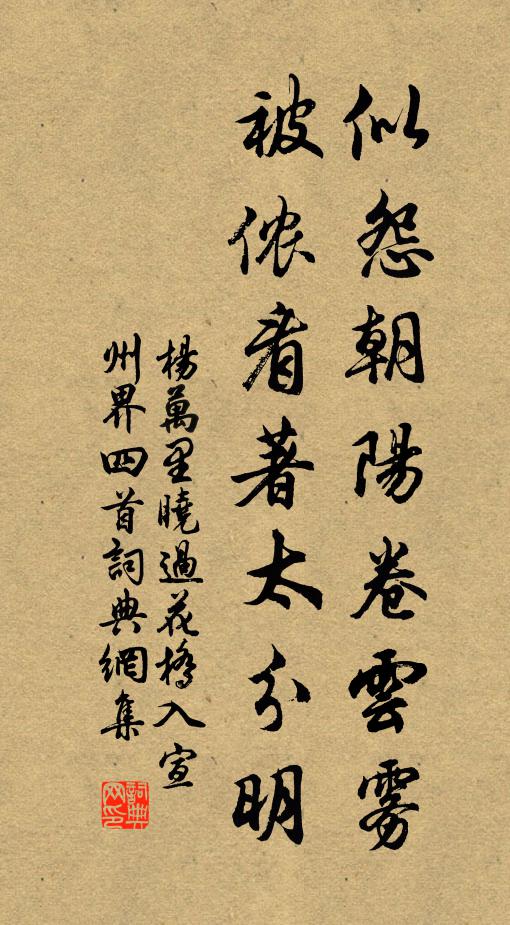 似怨朝陽卷雲霧
被侬看著太分明
楊萬里曉過花橋入宣
州界四首詞典網集
詞典
网印